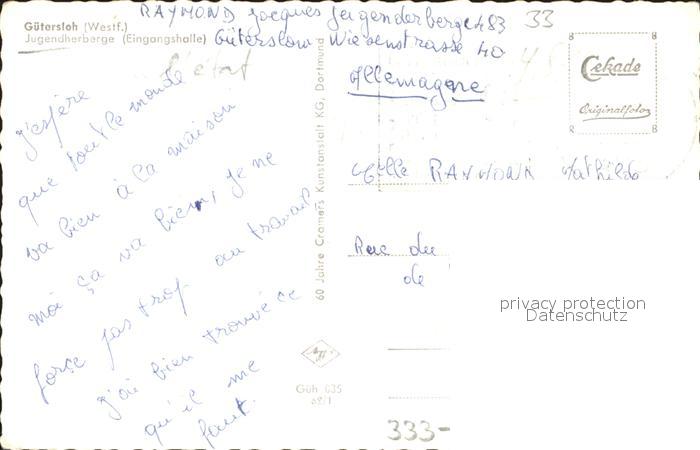 RAYMOND Jacques Jugenderberge 483 33
Gütersloh (Westf.)
Jugendherberge (Eingangshalle)
Gütersloh Wiesenstrasse 40
Allemagne
Cekade
Originalfoto
j'espère
que tout le monde
va bien à la maison
moi ça va bien, je ne
force pas trop au travail
j'ai bien trouvé ce
qu'il me
faut.
60 Jahre Cramers Kunstanstalt KG, Dortmund
Melle RAYMOND Mathilde
Rue du
de
privacy protection
Datenschutz
Güh 635
333-